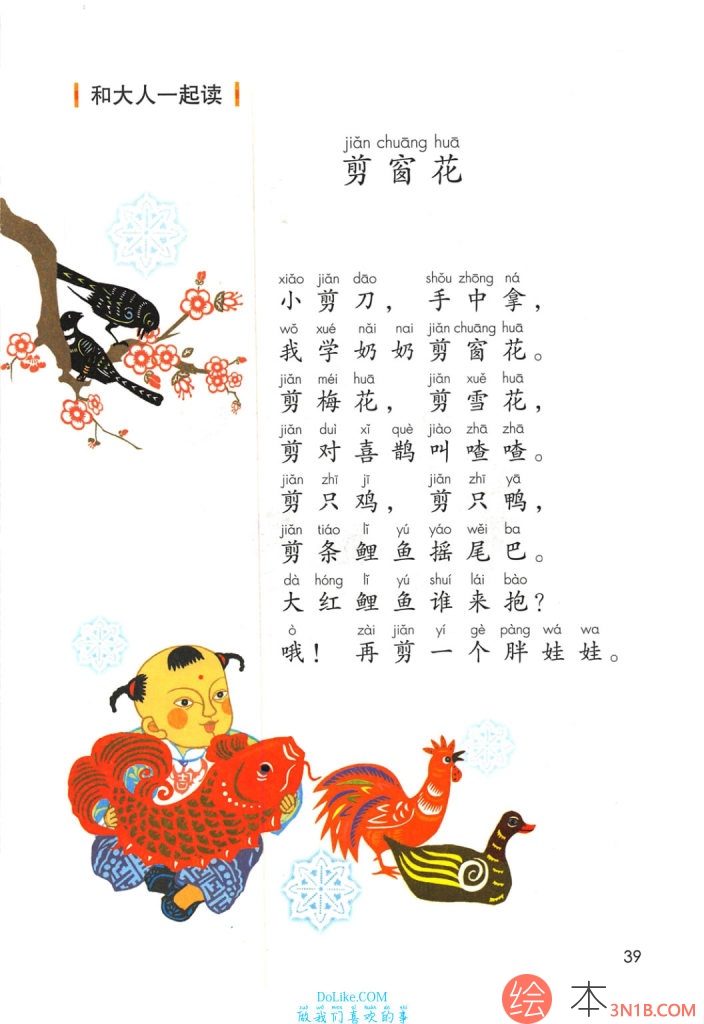 和大人一起读
jiǎn chuāng huā
剪窗花
xiǎo jiǎn dāo shǒu zhōng ná
小剪刀，手中拿，
wǒ xué nǎi nai jiǎn chuāng huā
我学奶奶剪窗花。
jiǎn méi huā jiǎn xuě huā
剪梅花，剪雪花，
jiǎn duì xǐ què jiào zhā zhā
剪对喜鹊叫喳喳。
jiǎn zhī jī jiǎn zhī yā
剪只鸡，剪只鸭，
jiǎn tiáo lǐ yú yáo wěi ba
剪条鲤鱼摇尾巴。
dà hóng lǐ yú shuí lái bào
大红鲤鱼谁来抱？
ò zài jiǎn yí gè pàng wá wa
哦！再剪一个胖娃娃。
吉
39
DoLike.COM
做我们喜欢的事
绘本 3N1B.COM